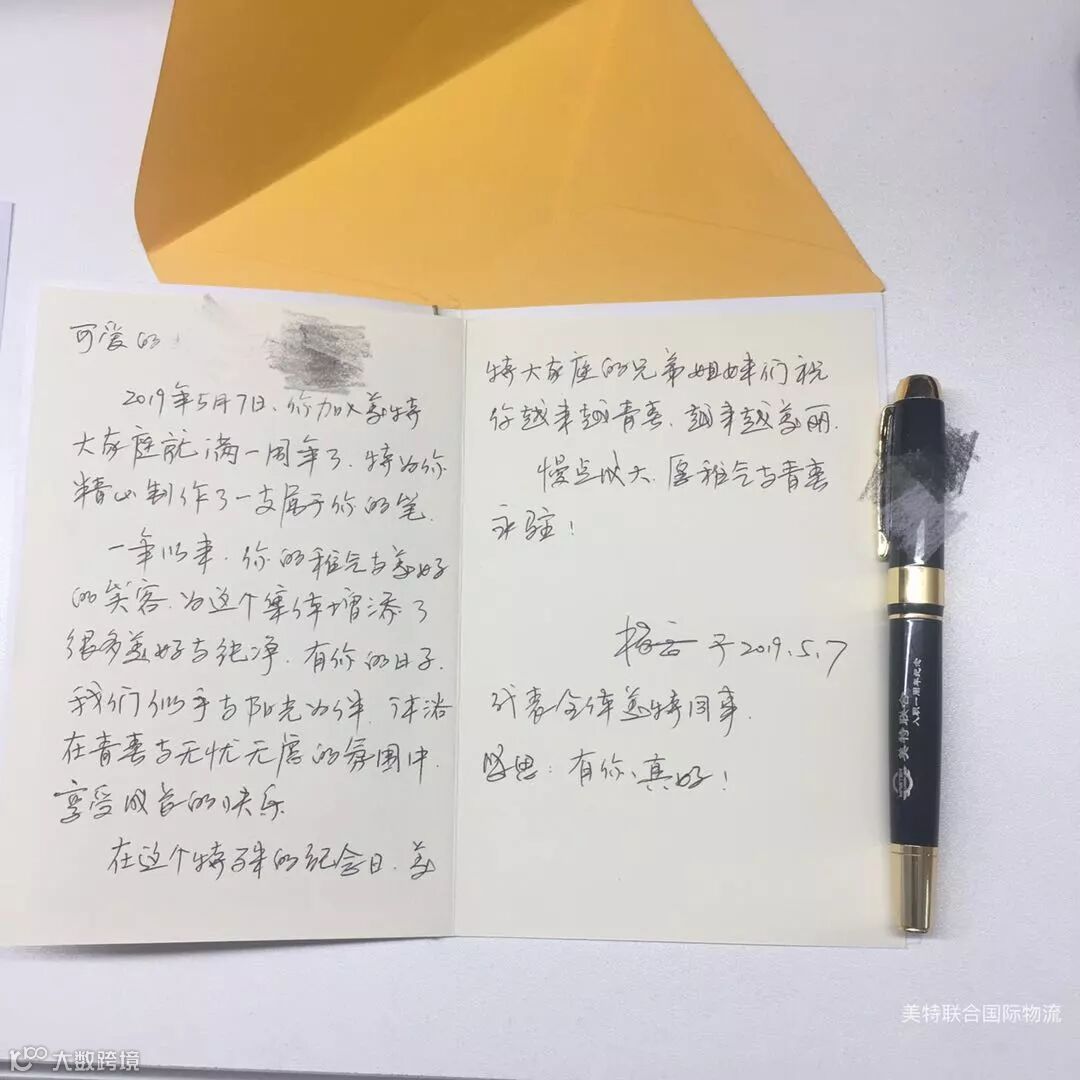 可爱的
2019年5月7日、你加入美特
大家庭就满一周年了.特为你
精心制作了一支属于你的笔.
一年以来.你的稚气与美好
的笑容.为这个集体增添了
很多美好与纯净.有你的日子.
我们似乎与阳光为伴.沐浴
在青春与无忧无虑的氛围中.
享受成长的快乐
在这个特殊的纪念日.美
特大家庭的兄弟姐妹们祝
你越来越青春.越来越美丽.
慢点成大.愿稚气与青春
永驻!
于2019.5.7
代表全体美特同事.
:有你、真好!
美特联合
入职一周年纪念
美特联合国际物流
大数跨境